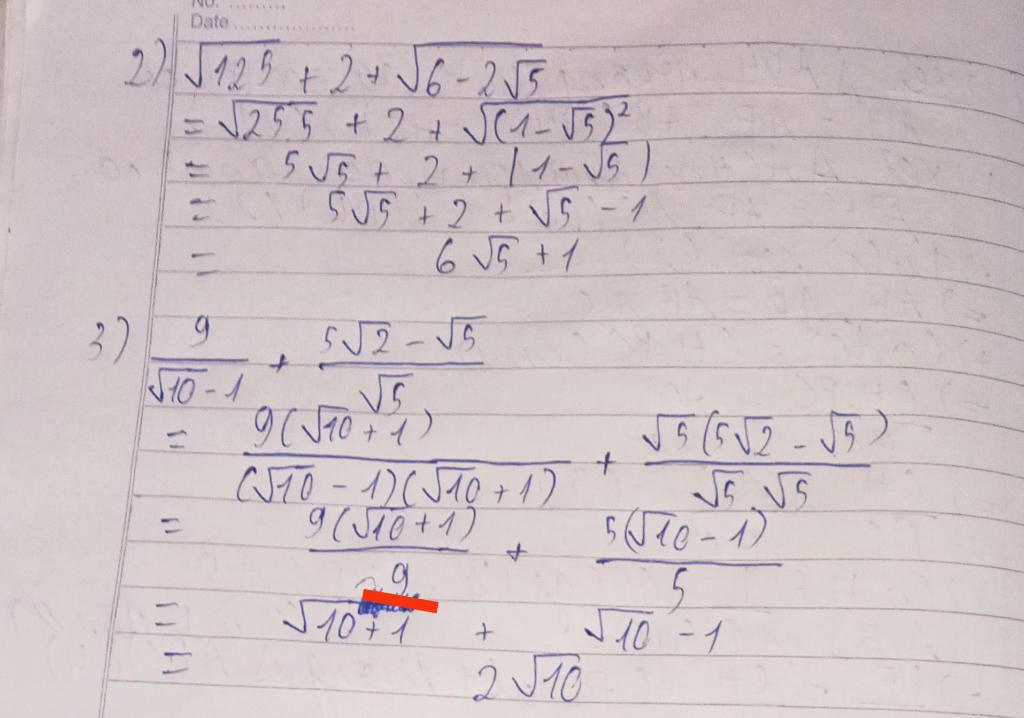 No. .........
Date .....................
2) √125 + 2 + √(6 - 2√5)
= √(25.5) + 2 + √((1 - √5)²)
= 5√5 + 2 + |1 - √5|
= 5√5 + 2 + √5 - 1
= 6√5 + 1
3) 9/(√10 - 1) + (5√2 - √5)/√5
= 9(√10 + 1)/((√10 - 1)(√10 + 1)) + √5(5√2 - √5)/(√5 √5)
= 9(√10 + 1)/9 + 5(√10 - 1)/5
= √10 + 1 + √10 - 1
= 2√10